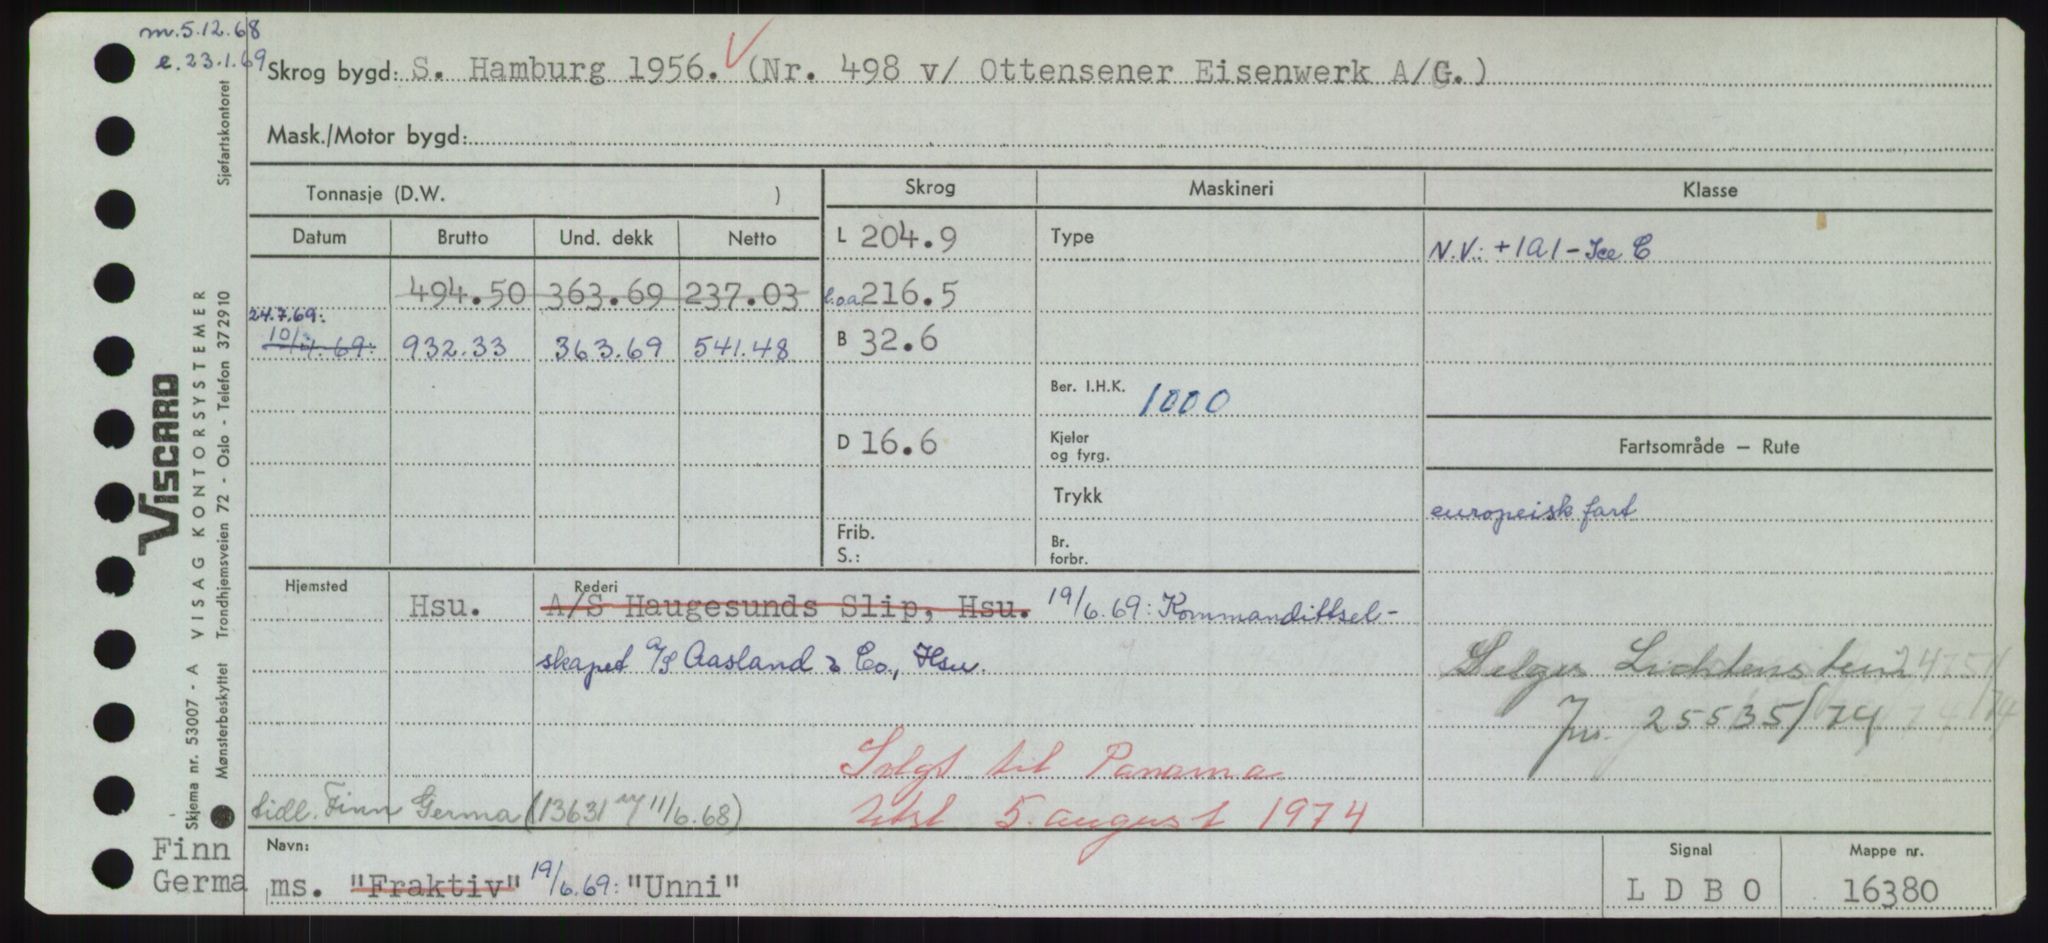 m. 5.12.68
e. 23.1.69
Skrog bygd: S. Hamburg 1956. (Nr. 498 v/ Ottensener Eisenwerk A/G.)
Mask./Motor bygd:
Tonnasje (D.W. )
Skrog Maskineri Klasse
Datum Brutto Und. dekk Netto
L 204.9 Type N.V.: +1A1-Ice C
494.50 363.69 237.03 l.o.a. 216.5
24.7.69:
10/4.69: 932.33 363.69 541.48 B 32.6
Ber. I.H.K. 1000
D 16.6 Kjeler og fyrg.
Fartsområde — Rute
Trykk
europeisk fart
Frib. S.:
Br. forbr.
Hjemsted Rederi
Hsu. A/S Haugesunds Slip, Hsu. 19/6.69: Kommandittsel-
skapet A/S Aasland & Co., Hsu.
Selges Lichtenstein
Jnr. 25535/74
Solgt til Panama
5. august 1974
tidl. Finn Germa (13631 11/6.68)
Finn Germa
Navn: ms. "Fraktiv" 19/6.69: "Unni"
Signal LDBO
Mappe nr. 16380
VISCARD
Skjema nr. 53007 - A VISAG KONTORSYSTEMER
Mønsterbeskyttet Trondhjemsveien 72 - Oslo - Telefon 372910
Sjøfartskontoret